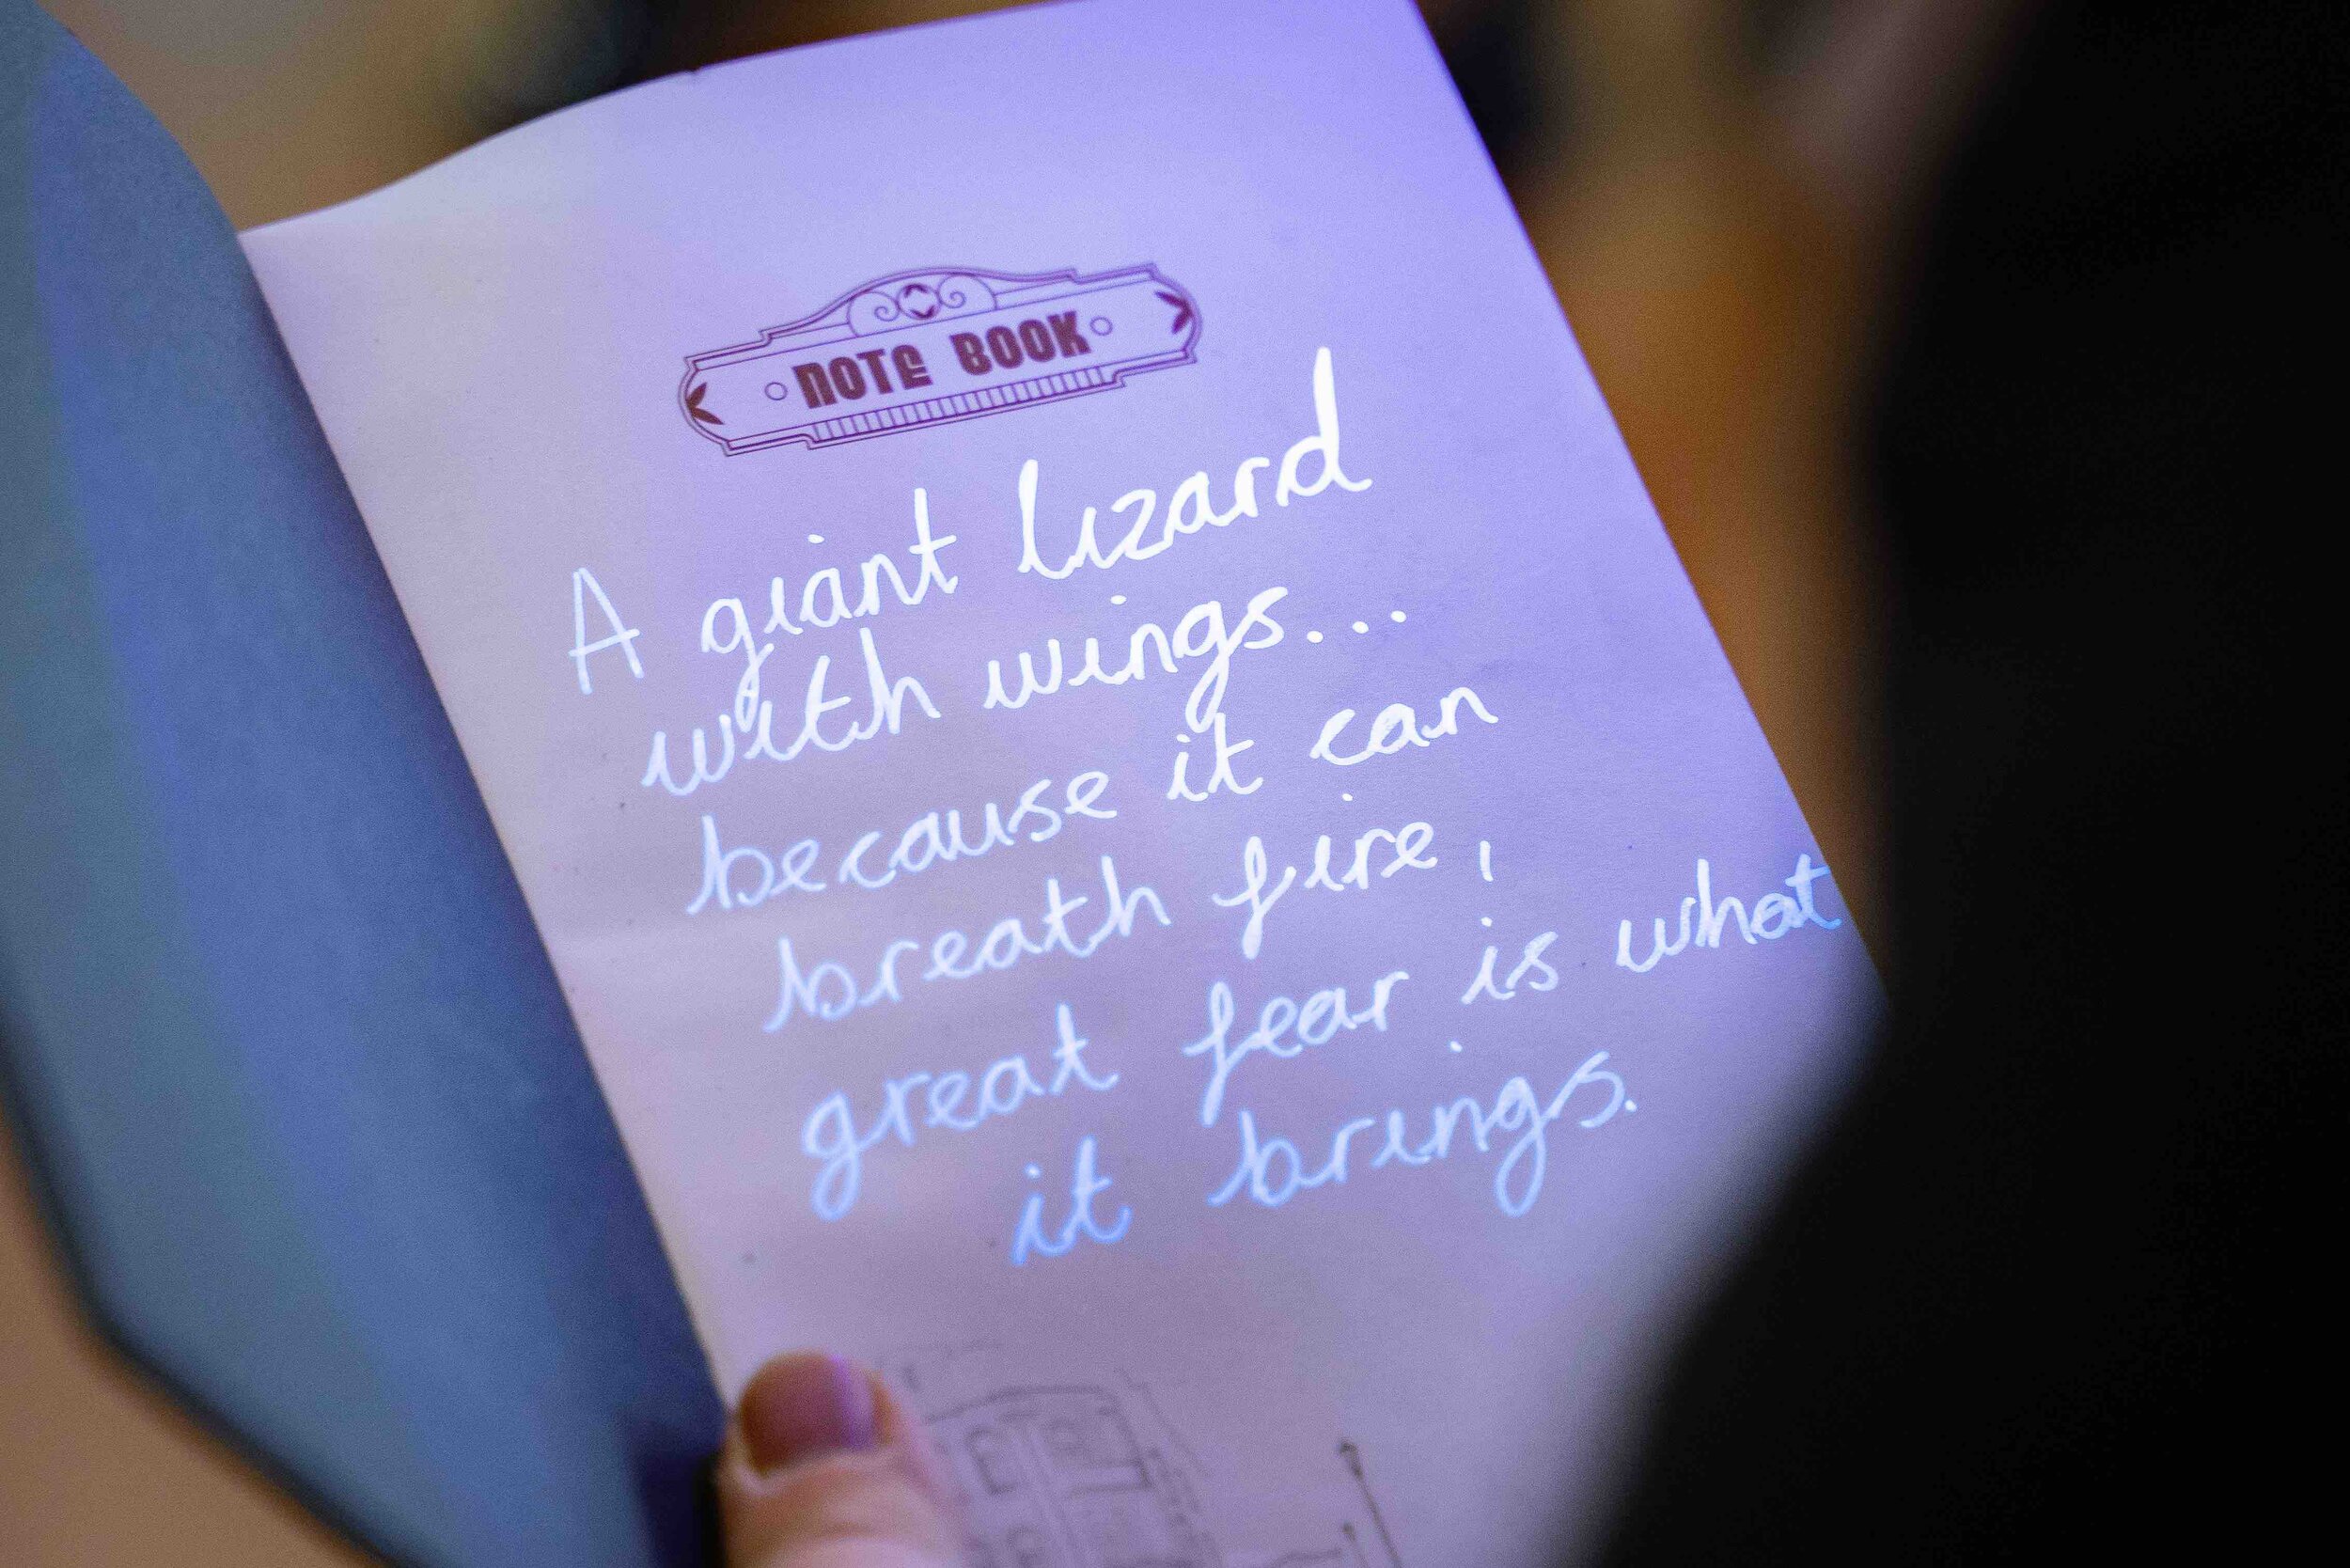 NOTE BOOK
A giant lizard
with wings...
because it can
breath fire,
great fear is what
it brings.